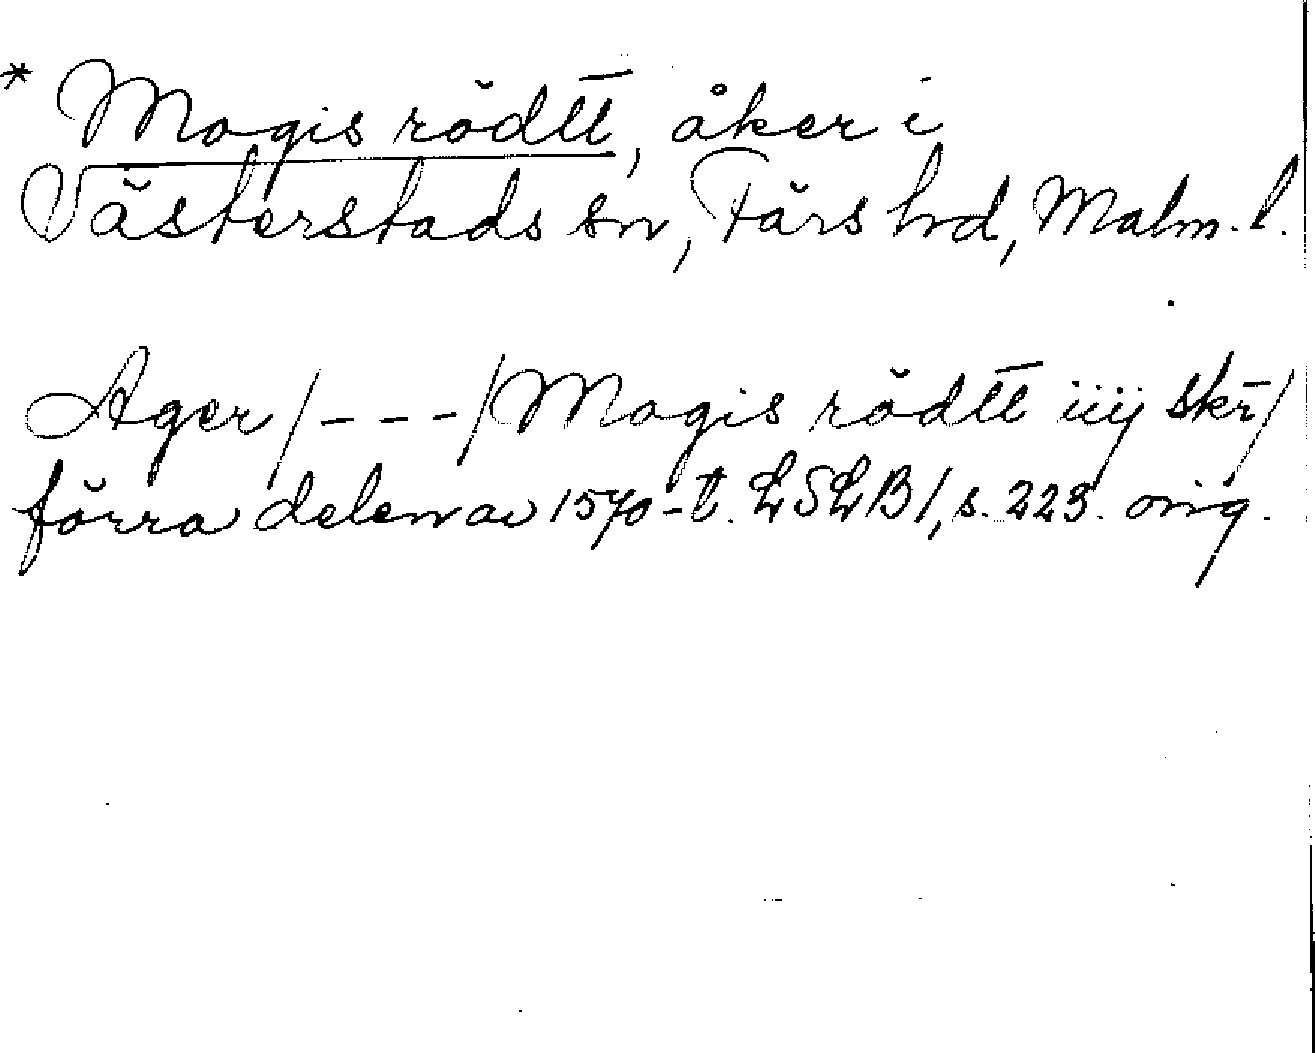 * Mogis rödtt, åker i
Västerstads sn, Färs hrd, Malm. l.
Ager /---/ Mogis rödtt iiij skr̄/
förra delen av 1570-t. LSLB 1, s. 223. orig.